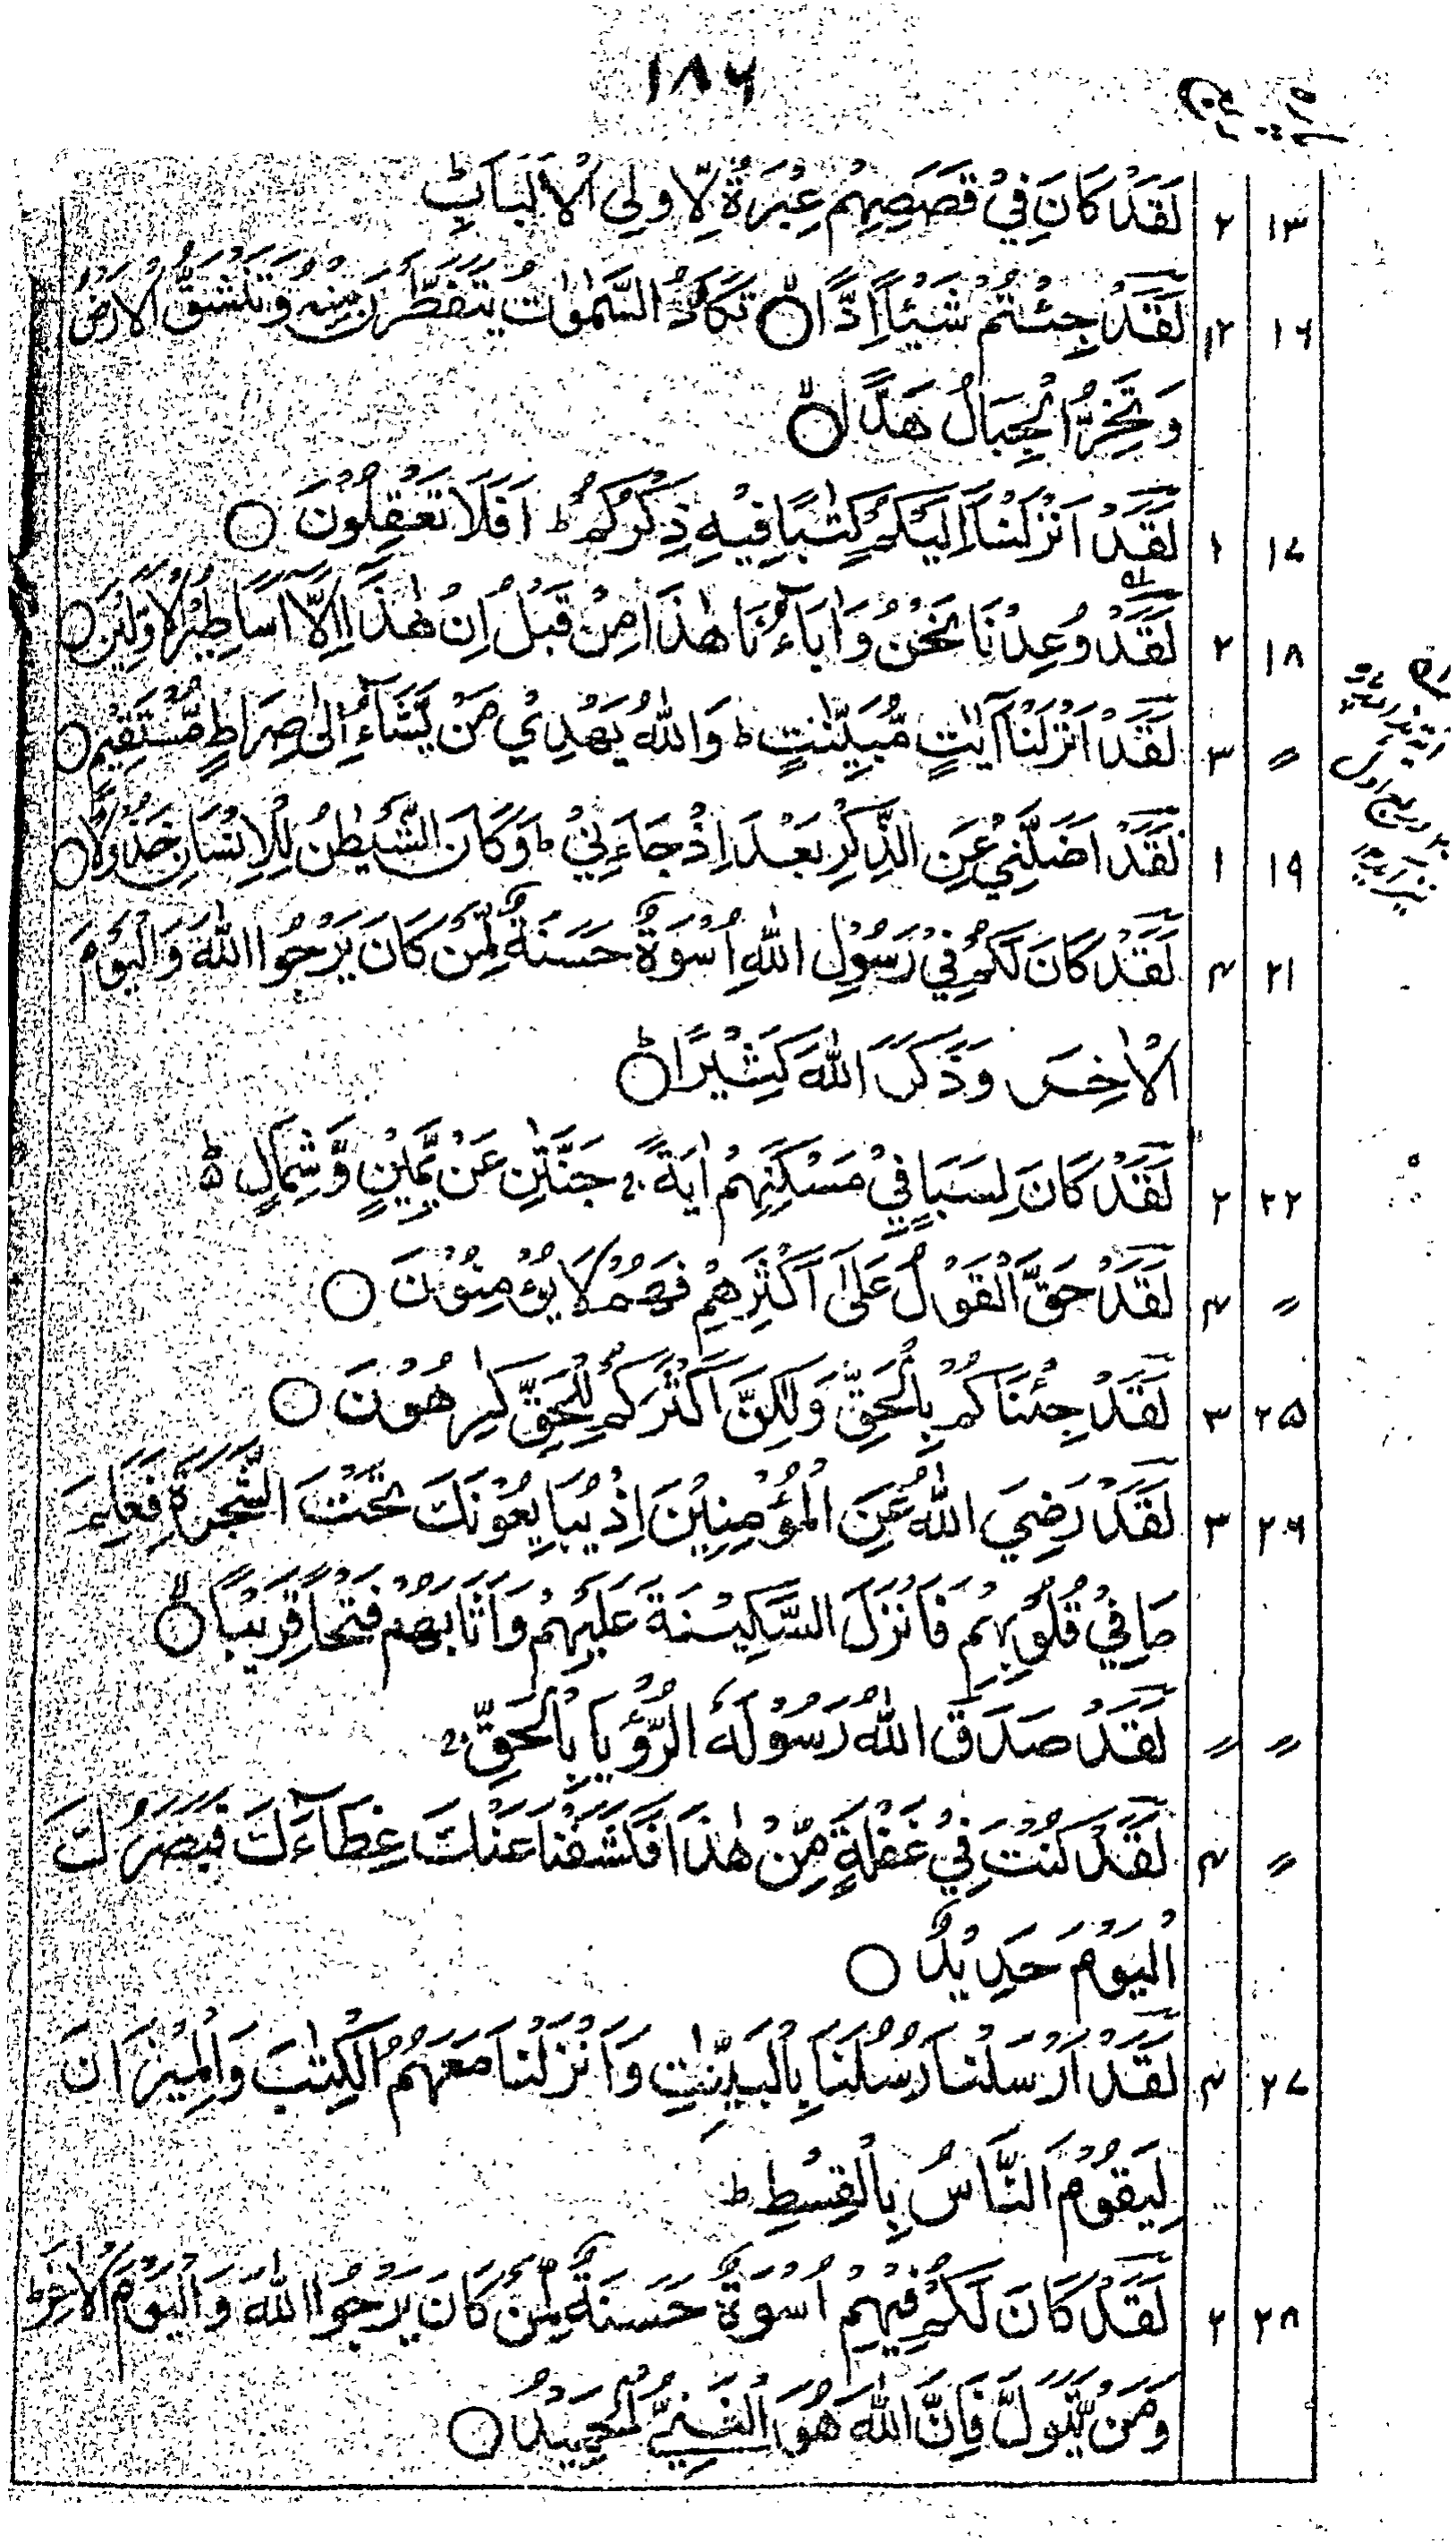 ۱۸۶
۱۳ ۲ لَقَدْ كَانَ فِيْ قَصَصِهِمْ عِبْرَةٌ لِّاُولِى الْاَلْبَابِ ط
۱۶ ۱۲ لَقَدْ جِئْتُمْ شَيْئًا اِدًّا ۙ○ تَكَادُ السَّمٰوٰتُ يَتَفَطَّرْنَ مِنْهُ وَتَنْشَقُّ الْاَرْضُ
وَتَخِرُّ الْجِبَالُ هَدًّا ۙ○
۱۷ ۱ لَقَدْ اَنْزَلْنَآ اِلَيْكُمْ كِتٰبًا فِيْهِ ذِكْرُكُمْ ط اَفَلَا تَعْقِلُوْنَ ○
۱۸ ۲ لَقَدْ وُعِدْنَا نَحْنُ وَاٰبَآؤُنَا هٰذَا مِنْ قَبْلُ اِنْ هٰذَآ اِلَّآ اَسَاطِيْرُ الْاَوَّلِيْنَ ○
〃 ۳ لَقَدْ اَنْزَلْنَآ اٰيٰتٍ مُّبَيِّنٰتٍ ط وَاللّٰهُ يَهْدِيْ مَنْ يَّشَآءُ اِلٰى صِرَاطٍ مُّسْتَقِيْمٍ ○
۱۹ ۱ لَقَدْ اَضَلَّنِيْ عَنِ الذِّكْرِ بَعْدَ اِذْ جَآءَنِيْ ط وَكَانَ الشَّيْطٰنُ لِلْاِنْسَانِ خَذُوْلًا ○
۲۱ ۴ لَقَدْ كَانَ لَكُمْ فِيْ رَسُوْلِ اللّٰهِ اُسْوَةٌ حَسَنَةٌ لِّمَنْ كَانَ يَرْجُوا اللّٰهَ وَالْيَوْمَ
الْاٰخِرَ وَذَكَرَ اللّٰهَ كَثِيْرًا ط○
۲۲ ۲ لَقَدْ كَانَ لِسَبَاٍ فِيْ مَسْكَنِهِمْ اٰيَةٌ ۚ جَنَّتٰنِ عَنْ يَّمِيْنٍ وَّشِمَالٍ ۬ط
〃 ۴ لَقَدْ حَقَّ الْقَوْلُ عَلٰٓى اَكْثَرِهِمْ فَهُمْ لَا يُؤْمِنُوْنَ ○
۲۵ ۳ لَقَدْ جِئْنَاكُمْ بِالْحَقِّ وَلٰكِنَّ اَكْثَرَكُمْ لِلْحَقِّ كٰرِهُوْنَ ○
۲۶ ۳ لَقَدْ رَضِيَ اللّٰهُ عَنِ الْمُؤْمِنِيْنَ اِذْ يُبَايِعُوْنَكَ تَحْتَ الشَّجَرَةِ فَعَلِمَ
مَا فِيْ قُلُوْبِهِمْ فَاَنْزَلَ السَّكِيْنَةَ عَلَيْهِمْ وَاَثَابَهُمْ فَتْحًا قَرِيْبًا ۙ○
〃 〃 لَقَدْ صَدَقَ اللّٰهُ رَسُوْلَهُ الرُّؤْيَا بِالْحَقِّ ۚ
〃 ۴ لَقَدْ كُنْتَ فِيْ غَفْلَةٍ مِّنْ هٰذَا فَكَشَفْنَا عَنْكَ غِطَآءَكَ فَبَصَرُكَ
الْيَوْمَ حَدِيْدٌ ○
۲۷ ۴ لَقَدْ اَرْسَلْنَا رُسُلَنَا بِالْبَيِّنٰتِ وَاَنْزَلْنَا مَعَهُمُ الْكِتٰبَ وَالْمِيْزَانَ
لِيَقُوْمَ النَّاسُ بِالْقِسْطِ ط
۲۸ ۲ لَقَدْ كَانَ لَكُمْ فِيْهِمْ اُسْوَةٌ حَسَنَةٌ لِّمَنْ كَانَ يَرْجُوا اللّٰهَ وَالْيَوْمَ الْاٰخِرَ ط
وَمَنْ يَّتَوَلَّ فَاِنَّ اللّٰهَ هُوَ الْغَنِيُّ الْحَمِيْدُ ○